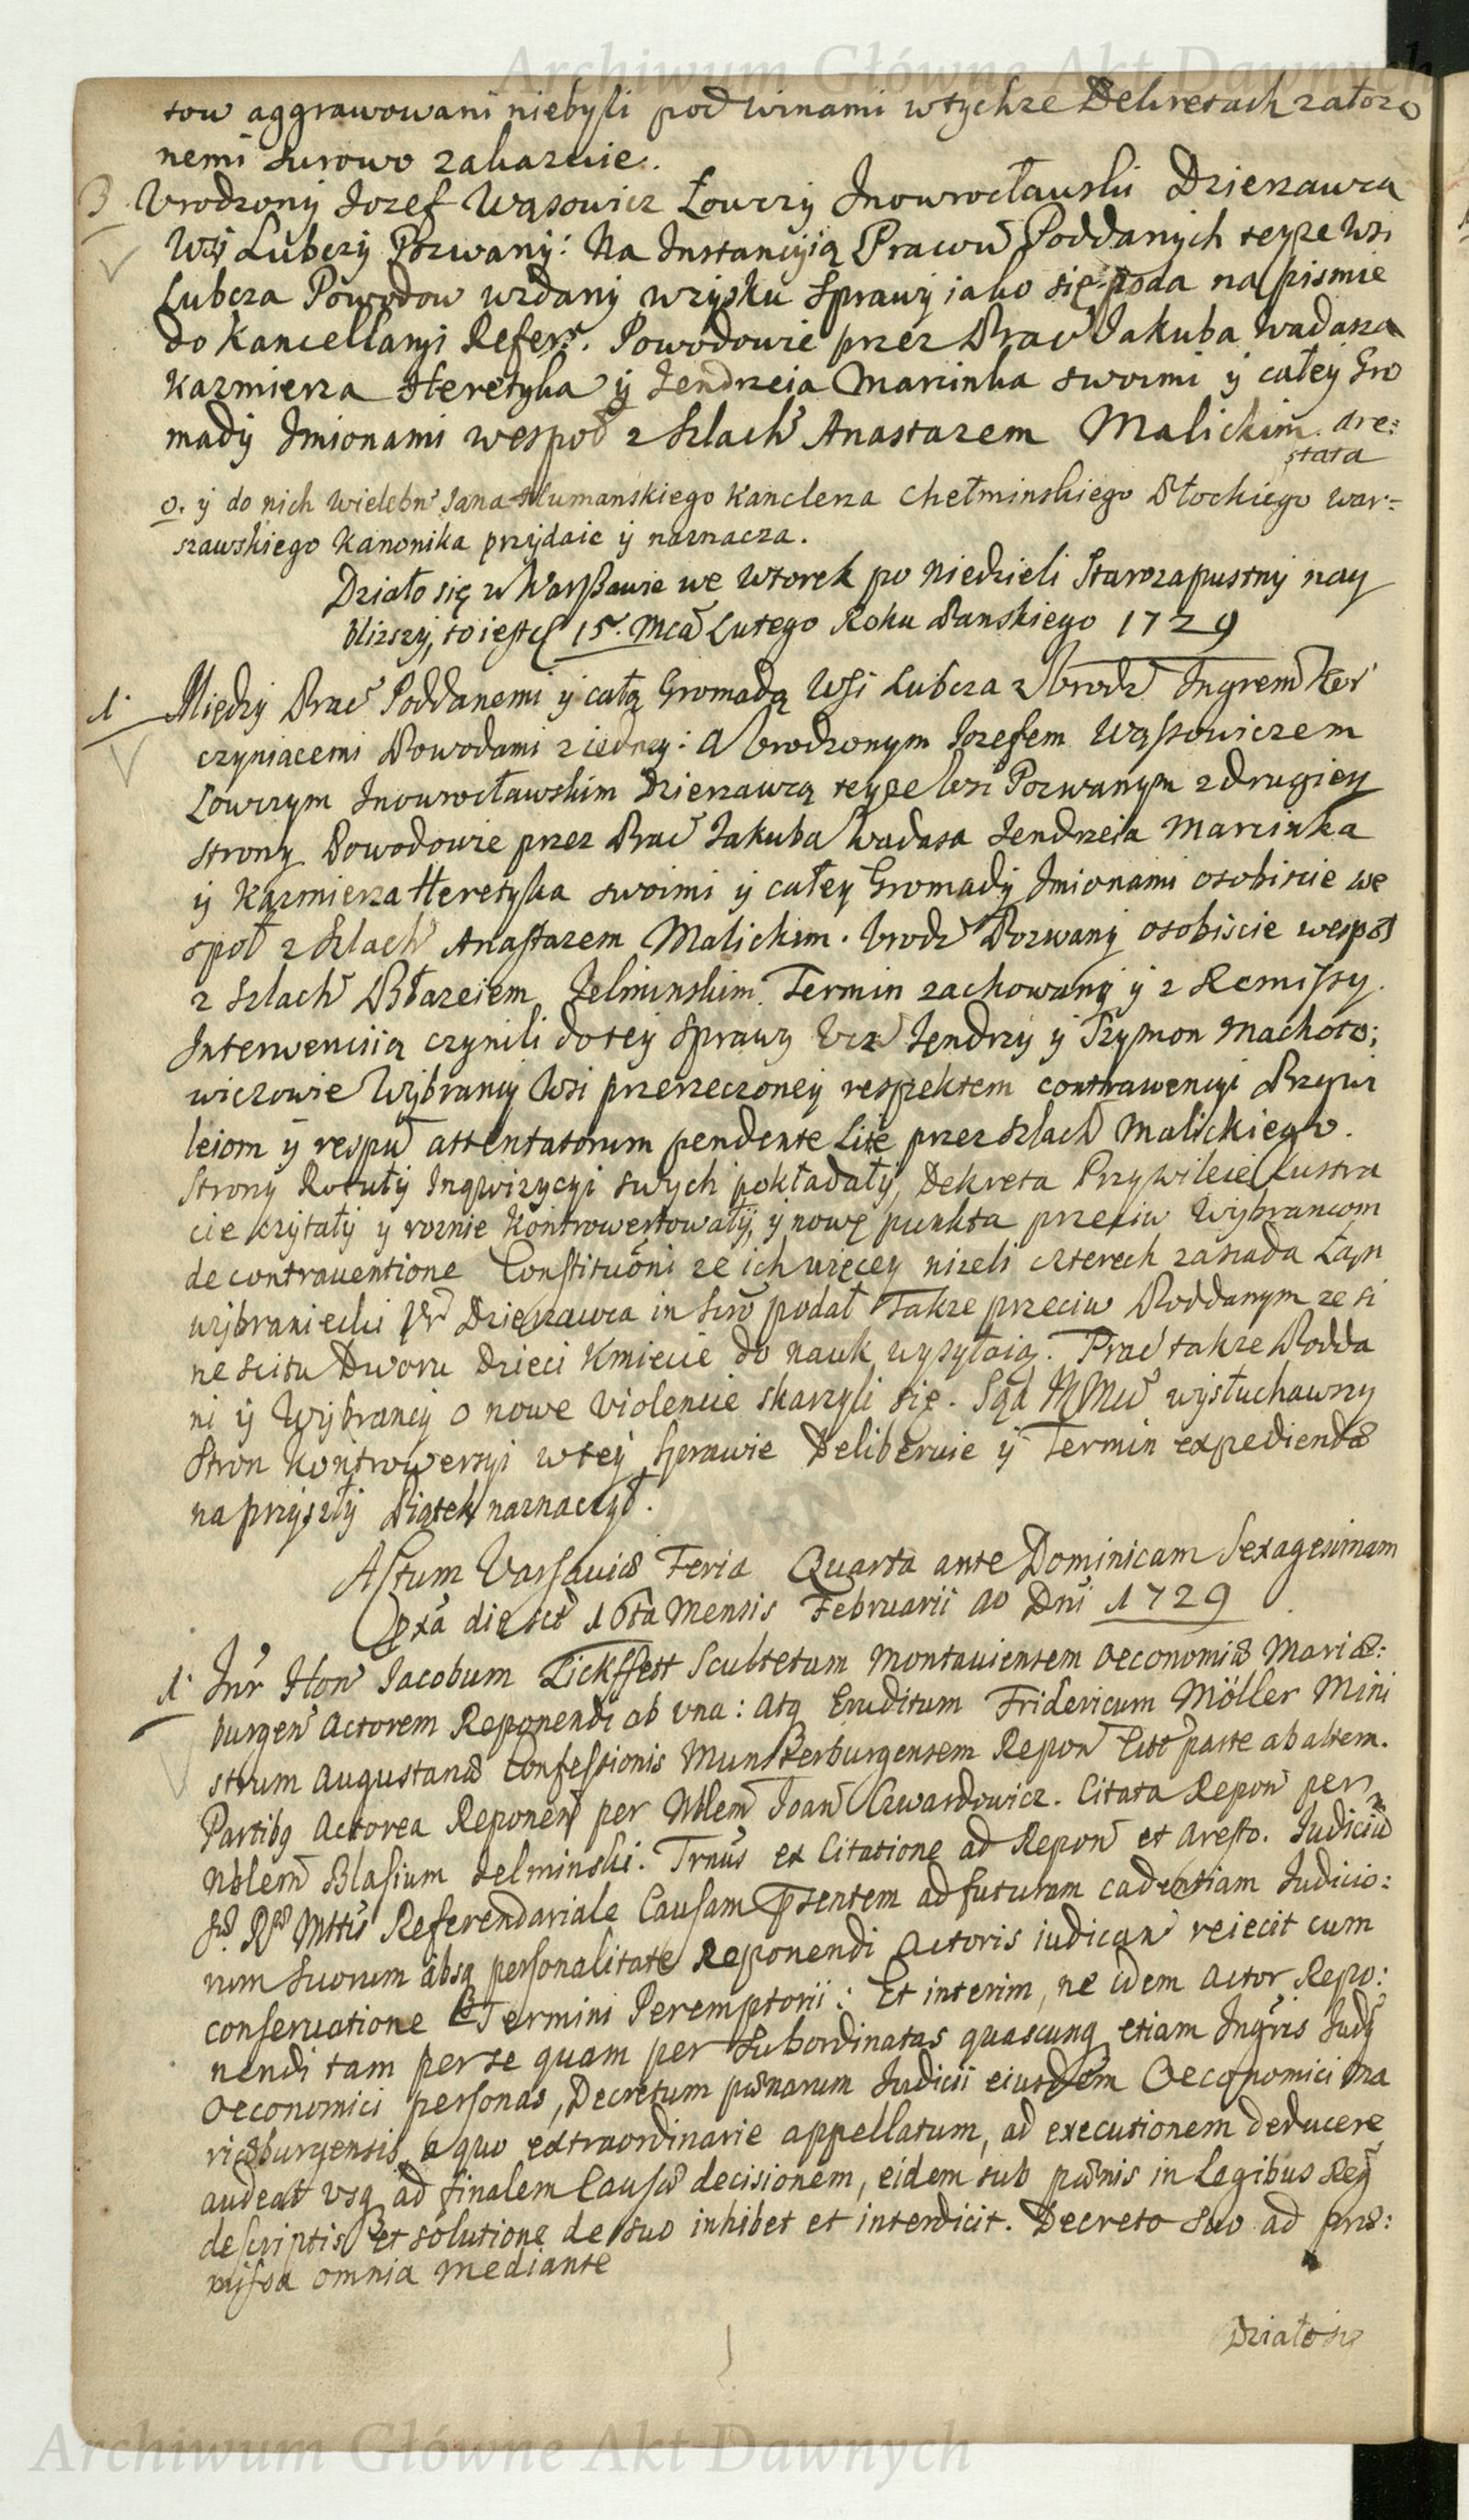 Archiwum Główne Akt Dawnych
tow aggrawowani niebyli pod winami wtychze Dekretach załozo
nemi surowo zakazuie.
3 Vrodzony Jozef Wąsowicz Łowczy Jnowrocławski Dzierzawca
Wsi Lubczy Pozwany: Na Jnstancyią Pracow̃ Poddanych teyze Wsi
Lubcza Powodow wzdany wzysku Sprawy iako się poda na pismie
do Kancellaryi Refer. Powodowie przez Prac̃ Jakuba Wadasza
Kazmierza Heretyka y Jendrzeia Marcinka swoimi y całey Gro
mady Jmionami wespoł z Szlach̃ Anastazem Malickim. are:
stata
o. y do nich wielebn̄ Jana Humanskiego Kanclerza Chełminskiego Płockiego War=
szawskiego Kanonika przydaie y naznacza.
Działo się w Warszawie we Wtorek po Niedzieli Starozapustny nay
blizszy, to iest 15. Mca Lutego Roku Panskiego 1729
1. Między Prac̃ Poddanemi y całą Gromadą Wsi Lubcza z Vrodz̃ Jngrem̃
czyniacemi Powodami z iedney: A Vrodzonym Jozefem Wąsowiczem
Łowczym Jnowrocławskim Dzierzawcą teyze Wsi Pozwanym z drugiey
strony Powodowie przez Prac̃ Jakuba Wadasa Jendrzeia Marcinka
y Kazmierza Heretyka swoimi y całey Gromady Jmionami osobiscie we
społ z Szlach̃ Anastazem Malickim. Vrodz̃ Pozwany osobiscie wespoł
z Szlach̃ Błazeiem Jelminskim. Termin zachowany y z Remissy.
Jnterwenciią czynili do tey Sprawy Ucz̃ Jendrzy y Szymon Machoto;
wiczowie Wybrancy Wsi przerzeczoney respektem contrawencyi Przywi
leiom y respũ attentatorum pendente Lite przez Szlach̃ Malickiego.
Strony Rotuły Jnqwizycyi swych pokładały, Dekreta Przywileie Lustra
cie czytały y roznie Kontrowertowały, y nowe punkta przeciw Wybrancom
de contrauentione Constituõni ze ich więcey nizeli czterech zasiada Łan
wybraniecki Ur̃ Dzierzawca in scro podał Takze przeciw Poddanym ze si
ne scitu Dworu Dzieci Kmiecie do nauk wysyłaią. Prac̃ takze Podda
ni y Wybrancy o nowe violencie skarzyli się. Sąd wysłuchawszy
Stron Kontrowersyi w tey Sprawie Deliberuie y Termin expediendæ
na przyszły Piątek naznaczył.
Actum Varsaviæ Feria Quarta ante Dominicam Sexagesimam
pxã die sct̃ 16ta Mensis Februarii Ao Dni 1729
1. Jnt̃r Hon̄ Jacobum Lickfett Scultetum Montauiensem Oeconomiæ Mariæ:
burgen̄ Actorem Reponendi ab vna: atq Eruditum Fridericum Möller Mini
strum Augustanæ Confessionis Munsterburgensem Repon̄ Citt̃ parte ab altera.
Partibq Actorea Reponen̄ per Nblem̄ Joan̄ Czwardowicz. Citata Repon̄ per
Nblem̄ Blasium Jelminski. Trnũs ex Citatione ad Repon̄ et Aresto. Judiciũ
Sæ Ræ Mttis Referendariale Causam pr̃sentem ad futuram cadentiam Judicio:
rum suorum absq personalitate Reponendi Actoris iudican̄ reiecit cum
conseruatione Termini Peremptorii: Et interim, ne idem Actor Repo:
nendi tam per se quam per subordinatas quascunq etiam Jngr̃is Judy
Oeconomici personas, Decretum pœnarum Judicii eiusdem Oeconomici Ma
riæburgensis, a quo extraordinarie appellatum, ad executionem deducere
audeat vsq ad finalem Causæ decisionem, eidem sub pœnis in Legibus Reg̃
descriptis et solutione de suo inhibet et interdicit. Decreto suo ad præ:
missa omnia mediante
Działo się
Archiwum Główne Akt Dawnych